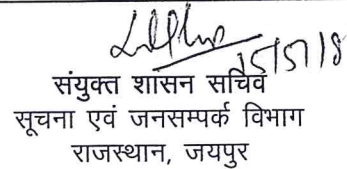 15/5/18
संयुक्त शासन सचिव
सूचना एवं जनसम्पर्क विभाग
राजस्थान, जयपुर